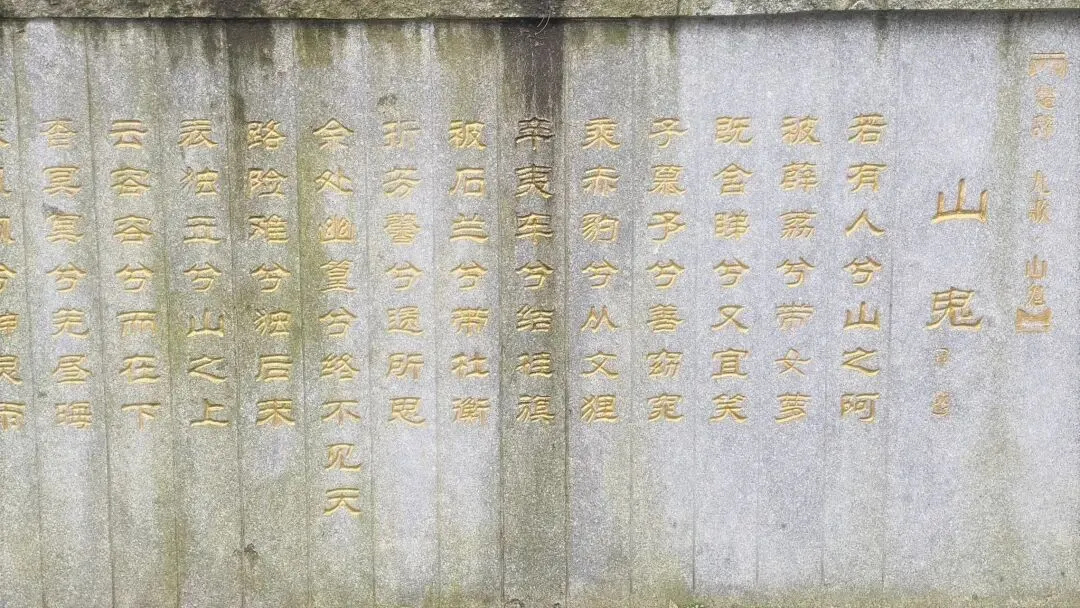 【楚辞 九歌 山鬼】
山鬼
若有人兮山之阿
被薜荔兮带女萝
既含睇兮又宜笑
子慕予兮善窈窕
乘赤豹兮从文狸
辛夷车兮结桂旗
被石兰兮带杜衡
折芳馨兮遗所思
余处幽篁兮终不见天
路险难兮独后来
表独立兮山之上
云容容兮而在下
杳冥冥兮羌昼晦